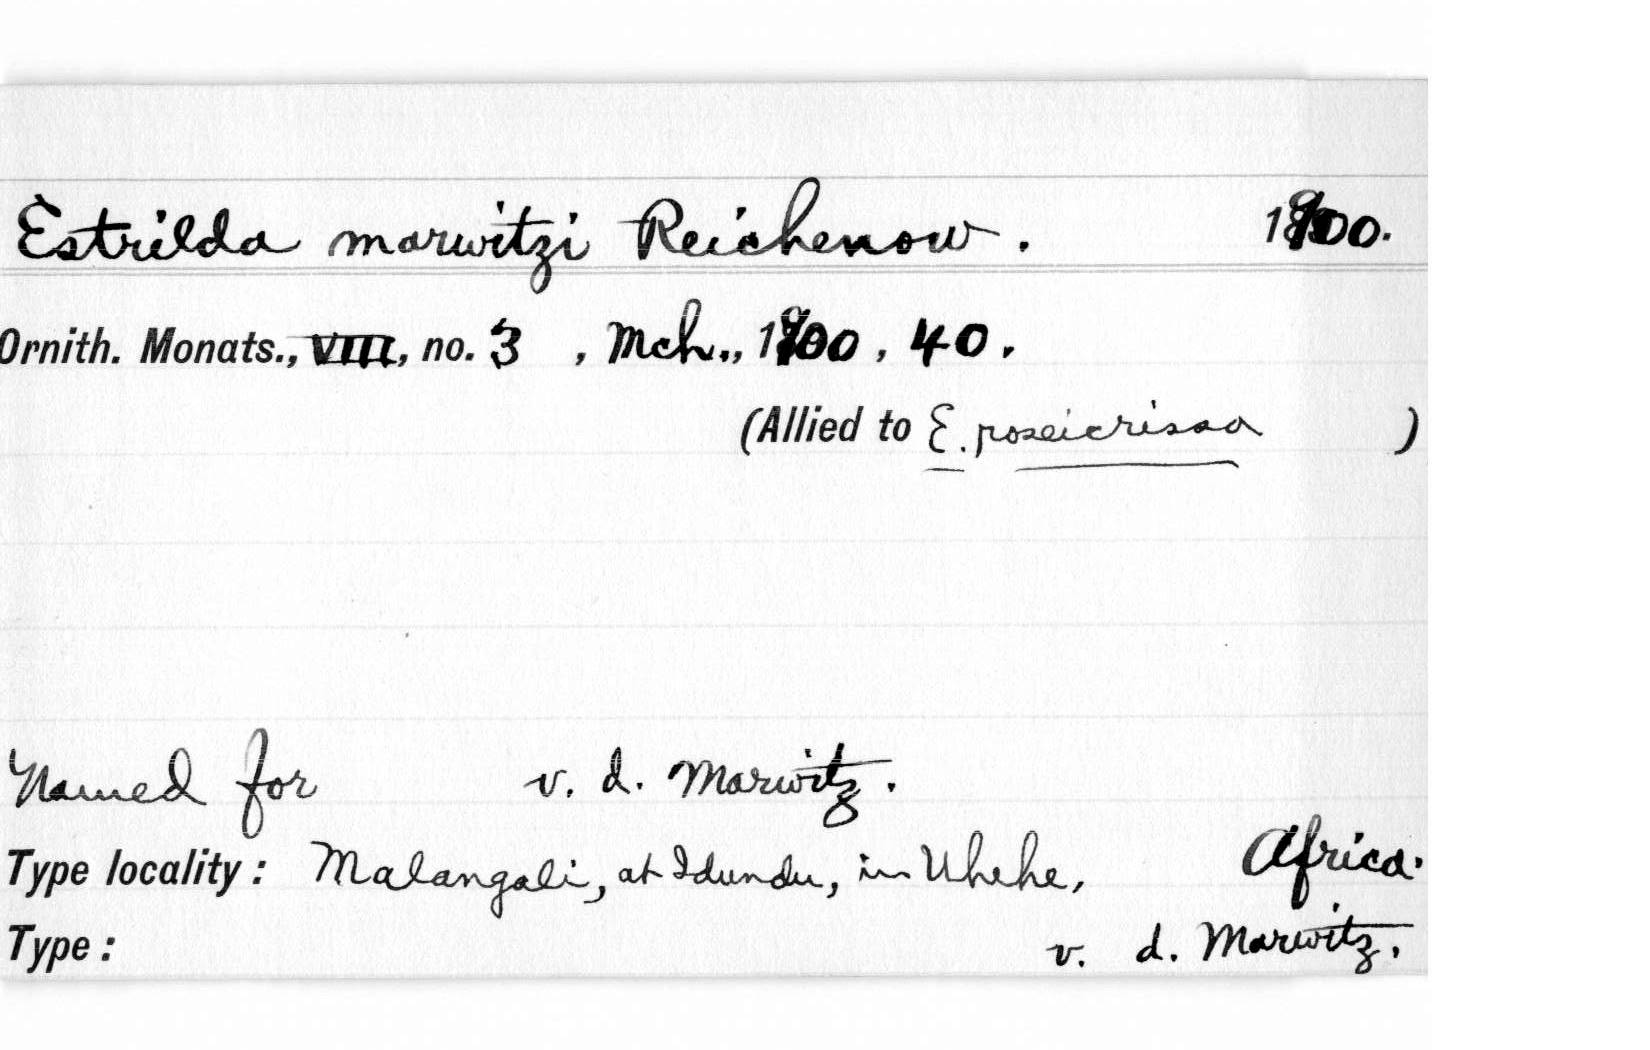 Estrilda marwitzi Reichenow. 1900.
Ornith. Monats., VIII, no. 3 , Mch., 1900, 40.
(Allied to E. roseicrissa )
Named for v. d. Marwitz.
Type locality: Malangali, at Idundu, in Uhehe, Africa.
Type: v. d. Marwitz.